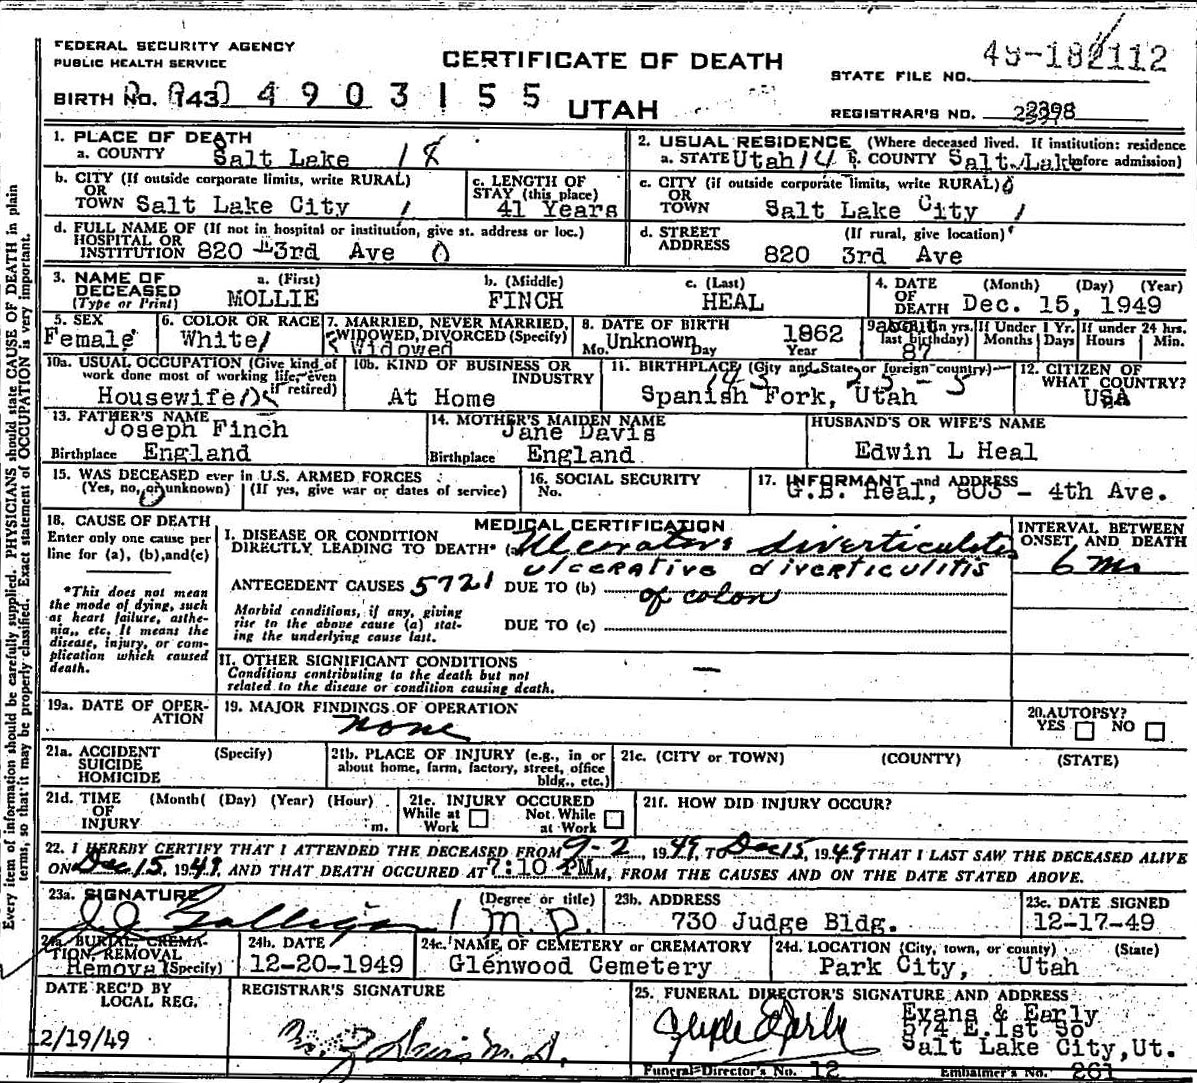 FEDERAL SECURITY AGENCY
PUBLIC HEALTH SERVICE
CERTIFICATE OF DEATH
STATE FILE NO.
BIRTH NO. 4903155
UTAH
REGISTRAR'S NO. 2398
1. PLACE OF DEATH
a. COUNTY Salt Lake 18
2. USUAL RESIDENCE (Where deceased lived. If institution: residence
a. STATE Utah b. COUNTY Salt Lake before admission)
b. CITY (If outside corporate limits, write RURAL)
OR
TOWN Salt Lake City 1
c. LENGTH OF
STAY (this place)
41 Years
c. CITY (if outside corporate limits, write RURAL)
OR
TOWN Salt Lake City 1
d. FULL NAME OF (If not in hospital or institution, give st. address or loc.)
HOSPITAL OR
INSTITUTION 820 - 3rd Ave 0
d. STREET (If rural, give location)
ADDRESS 820 3rd Ave
3. NAME OF DECEASED
(Type or Print)
a. (First) b. (Middle) c. (Last)
MOLLIE FINCH HEAL
4. DATE OF DEATH (Month) (Day) (Year)
Dec. 15, 1949
5. SEX
Female
6. COLOR OR RACE
White
7. MARRIED, NEVER MARRIED,
WIDOWED, DIVORCED (Specify)
Widowed
8. DATE OF BIRTH
Mo. Unknown Day 1862 Year
9. about in yrs.
last birthday)
87
If Under 1 Yr.
Months Days
If under 24 hrs.
Hours Min.
10a. USUAL OCCUPATION (Give kind of
work done most of working life, even
if retired)
Housewife
10b. KIND OF BUSINESS OR
INDUSTRY
At Home
11. BIRTHPLACE (City and State or foreign country)
Spanish Fork, Utah
12. CITIZEN OF
WHAT COUNTRY?
USA
13. FATHER'S NAME
Joseph Finch
Birthplace England
14. MOTHER'S MAIDEN NAME
Jane Davis
Birthplace England
HUSBAND'S OR WIFE'S NAME
Edwin L Heal
15. WAS DECEASED ever in U.S. ARMED FORCES
(Yes, no, or unknown) (If yes, give war or dates of service)
16. SOCIAL SECURITY
No.
17. INFORMANT and ADDRESS
G.B. Heal, 803 - 4th Ave.
18. CAUSE OF DEATH
Enter only one cause per
line for (a), (b), and (c)
*This does not mean
the mode of dying, such
as heart failure, asthe-
nia,, etc. It means the
disease, injury, or com-
plication which caused
death.
MEDICAL CERTIFICATION
I. DISEASE OR CONDITION
DIRECTLY LEADING TO DEATH* (a) Ulcerative diverticulitis
ulcerative diverticulitis
ANTECEDENT CAUSES 5721 DUE TO (b) of colon
Morbid conditions, if any, giving
rise to the above cause (a) stat-
ing the underlying cause last.
DUE TO (c)
INTERVAL BETWEEN
ONSET AND DEATH
6 mo
II. OTHER SIGNIFICANT CONDITIONS
Conditions contributing to the death but not
related to the disease or condition causing death.
—
19a. DATE OF OPER-
ATION
19. MAJOR FINDINGS OF OPERATION
none
20. AUTOPSY?
YES NO
21a. ACCIDENT (Specify)
SUICIDE
HOMICIDE
21b. PLACE OF INJURY (e.g., in or
about home, farm, factory, street, office
bldg., etc.)
21c. (CITY or TOWN) (COUNTY) (STATE)
21d. TIME (Month( (Day) (Year) (Hour)
OF
INJURY m.
21e. INJURY OCCURED
While at Work Not While at Work
21f. HOW DID INJURY OCCUR?
22. I HEREBY CERTIFY THAT I ATTENDED THE DECEASED FROM 9-2, 1949, TO Dec 15, 1949 THAT I LAST SAW THE DECEASED ALIVE
ON Dec 15, 1949, AND THAT DEATH OCCURED AT 7:10 PM M, FROM THE CAUSES AND ON THE DATE STATED ABOVE.
23a. SIGNATURE (Degree or title)
M.D.
23b. ADDRESS
730 Judge Bldg.
23c. DATE SIGNED
12-17-49
24a. BURIAL, CREMA-
TION, REMOVAL
Removal (Specify)
24b. DATE
12-20-1949
24c. NAME OF CEMETERY or CREMATORY
Glenwood Cemetery
24d. LOCATION (City, town, or county) (State)
Park City, Utah
DATE REC'D BY
LOCAL REG.
12/19/49
REGISTRAR'S SIGNATURE
25. FUNERAL DIRECTOR'S SIGNATURE AND ADDRESS
Clyde E Early
Evans & Early
574 E.1st So
Salt Lake City, Ut.
Funeral Director's No. 12 Embalmer's No. 261
Every item of information should be carefully supplied. PHYSICIANS should state CAUSE OF DEATH in plain
terms, so that it may be properly classified. Exact statement of OCCUPATION is very important.